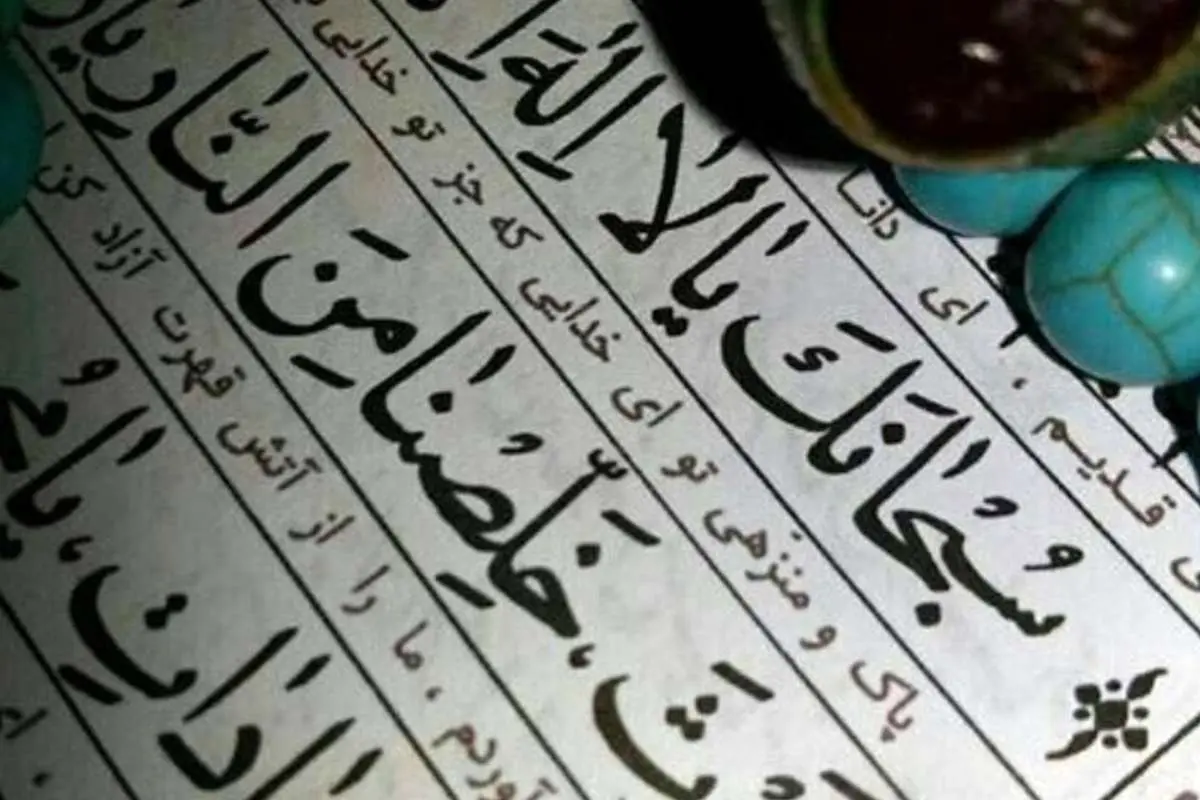 قدیم ، ای دانا
سُبْحانَكَ يا لا اِلٰهَ
پاک و منزهی تو ای خدایی که جز تو خدایی
خَلِّصْنا مِنَ النّارِ يا
آوردم ، ما را از آتش قهرت آزاد کن
اداتِ، يا
ای